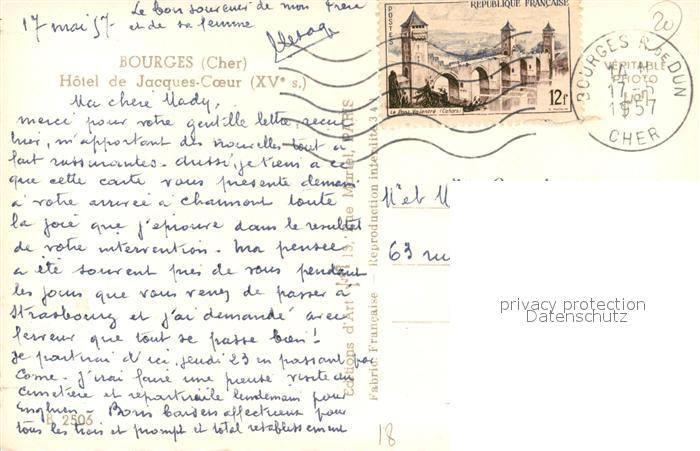 Le bon souvenir de mon frère
17 mai 57 et de sa femme
BOURGES (Cher)
Hôtel de Jacques-Cœur (XVe s.)
Ma chère Mady,
merci pour votre gentille lettre, reçue
hier, m'apportant des nouvelles tout à
fait rassurantes. Aussi, je tiens à ce
que cette carte vous présente demain
à votre arrivée à Chaumont toute
la joie que j'éprouve dans le résultat
de votre intervention. Ma pensée
a été souvent près de vous pendant
les jours que vous venez de passer à
Strasbourg et j'ai demandé avec
ferveur que tout se passe bien!
Je partirai d'ici, jeudi 23 en passant par
Cosne. J'irai faire une pieuse visite au
cimetière et repartirai le lendemain pour
Enghien - Bons baisers affectueux pour
tous les trois et prompt et total rétablissement
B 2506
Editions d'Art
PARIS
Fabric. Française — Reproduction interdite
RÉPUBLIQUE FRANÇAISE
POSTES
Le Pont Valentré (Cahors)
12f
BOURGES R. DE DUN
17-5
1957
CHER
VÉRITABLE
PHOTO
20
Mr et M
63 ru
18
privacy protection
Datenschutz